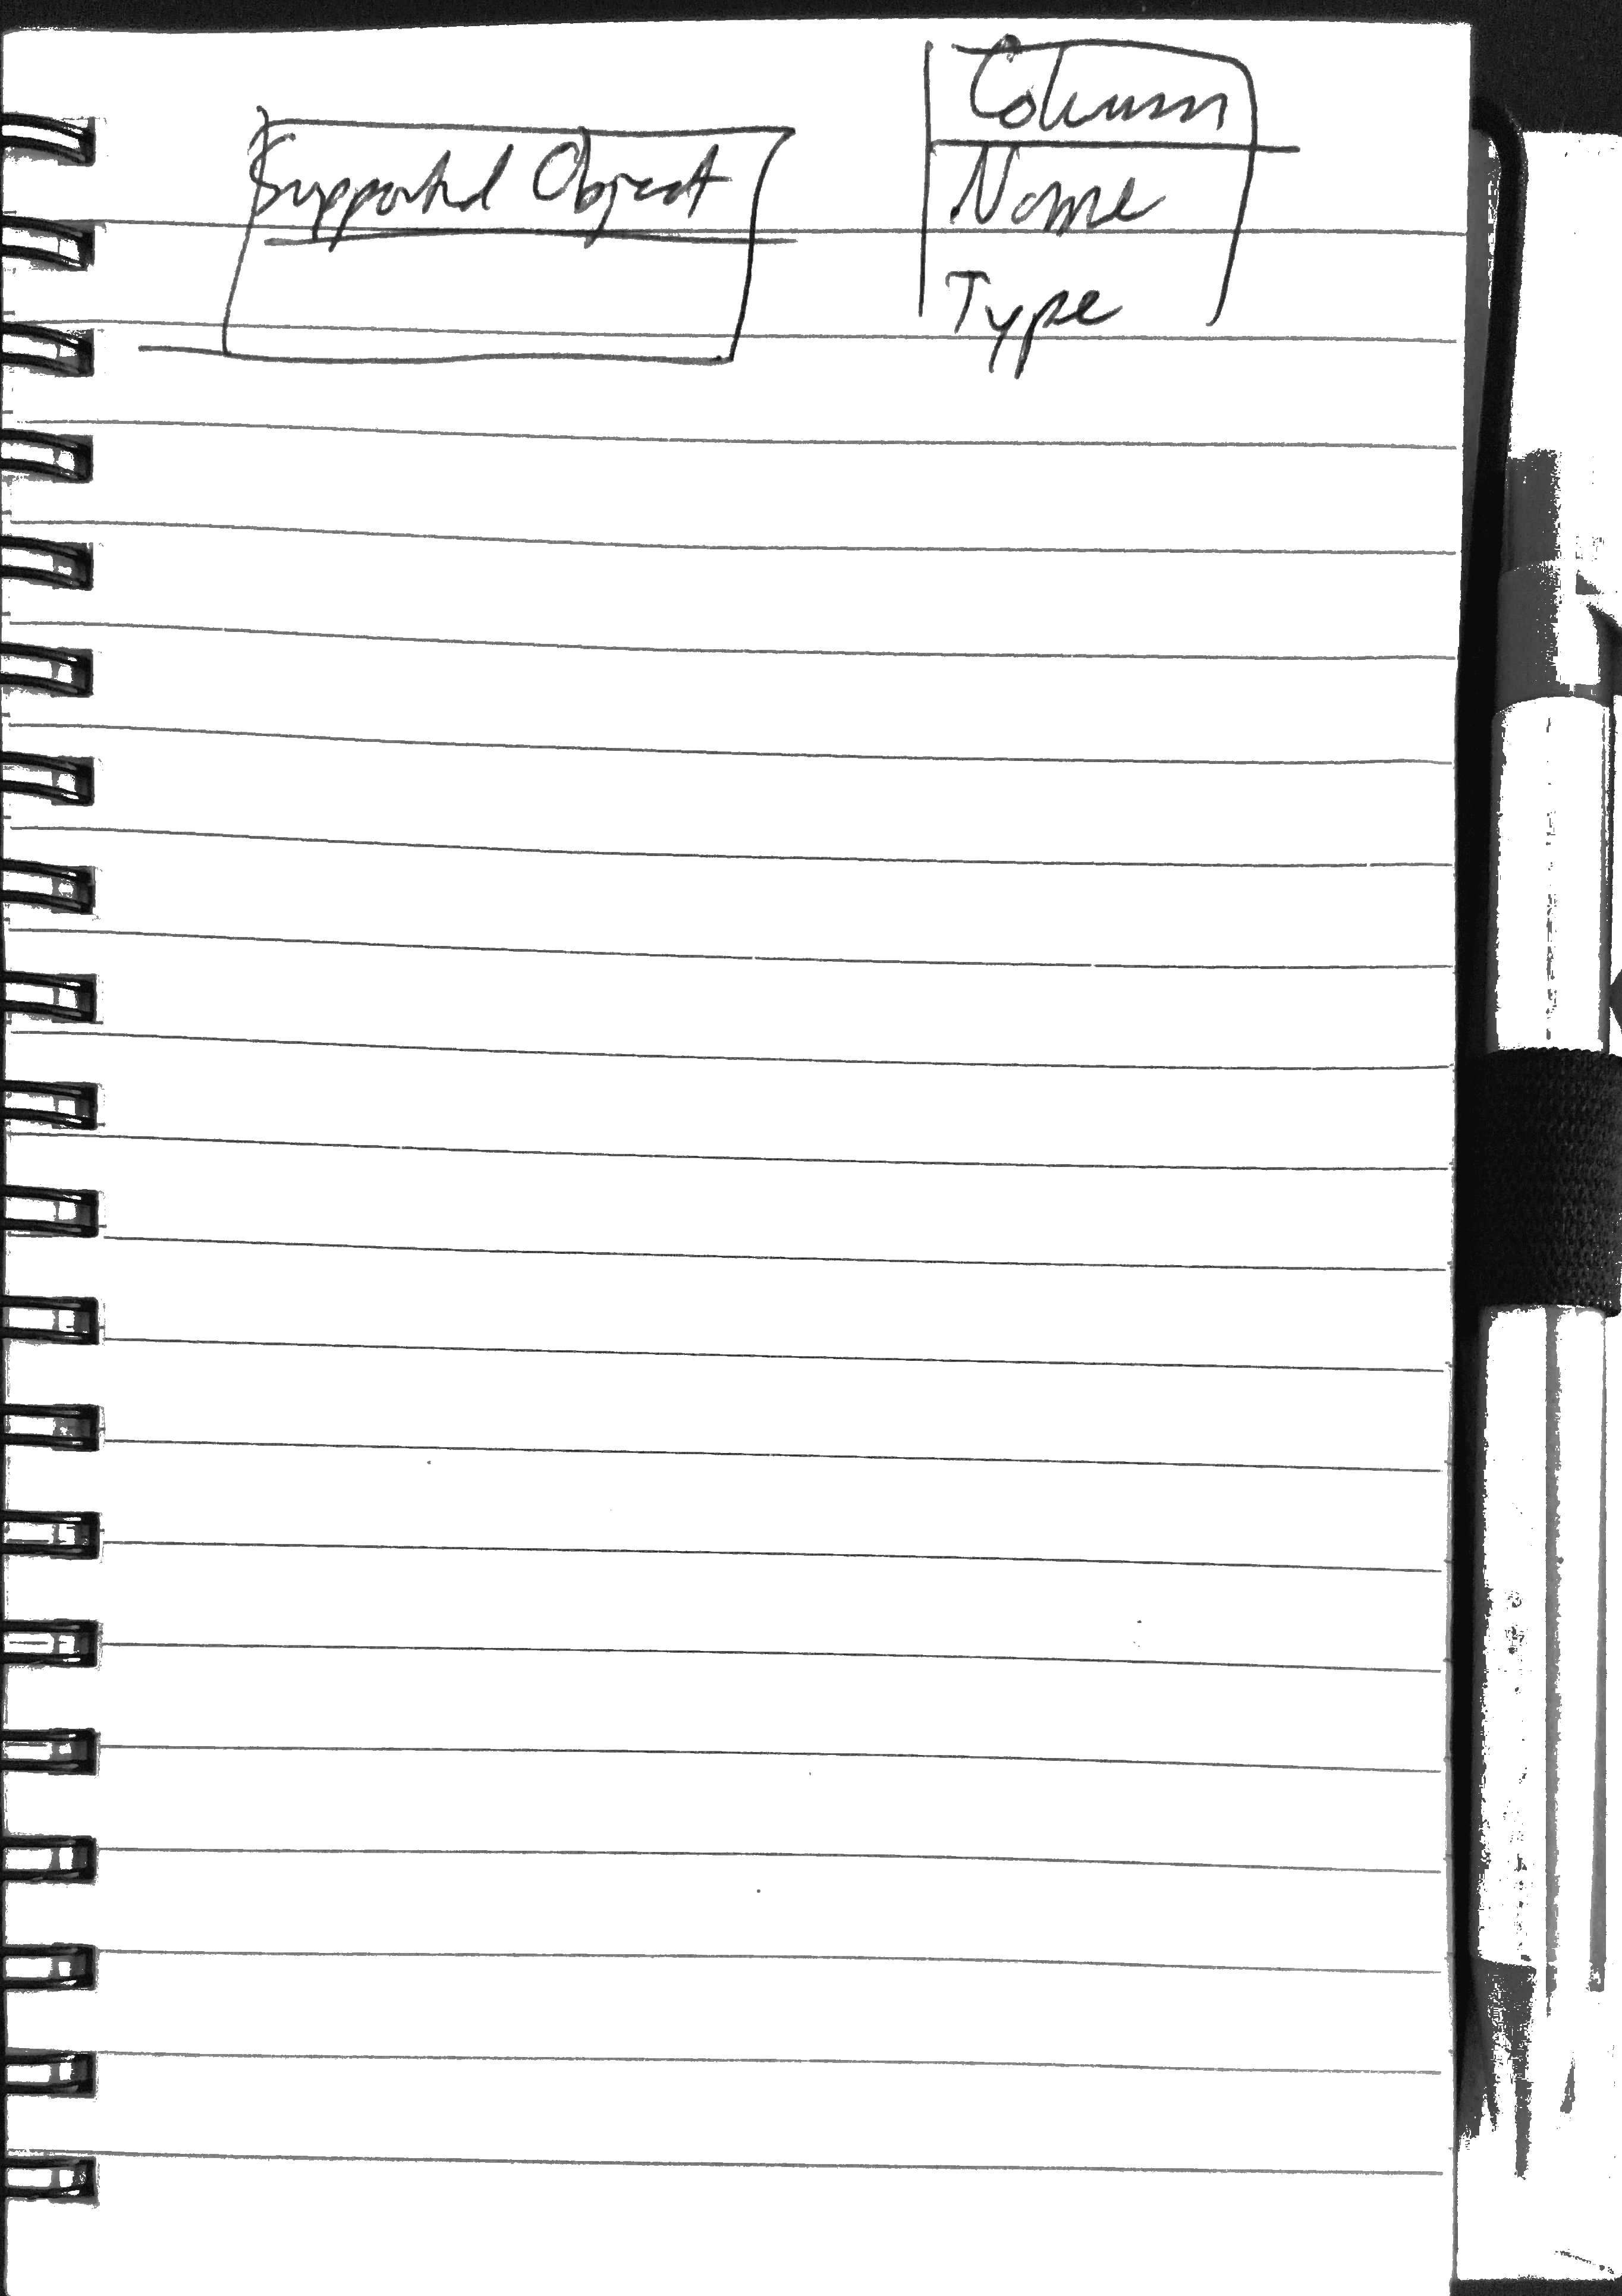 Supported Object
Column
Name
Type